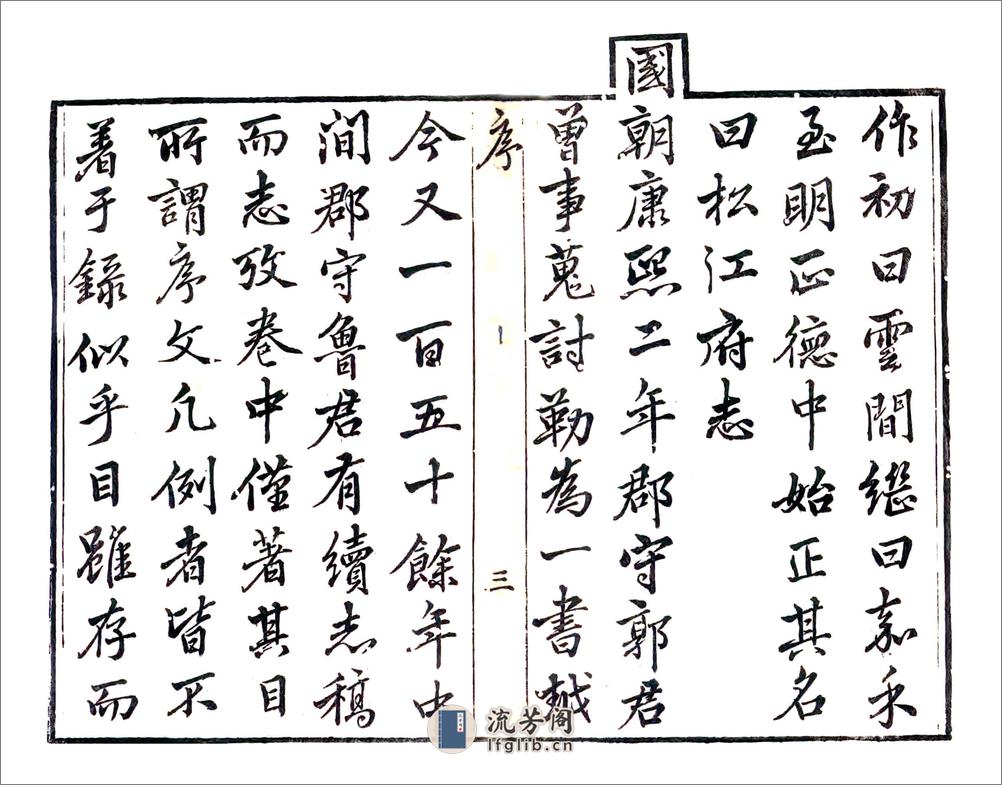 作初曰雲間繼曰嘉禾
至明正德中始正其名
曰松江府志
國朝康熙二年郡守郭君
曾事蒐討勒為一書越
序 三
今又一百五十餘年中
間郡守魯君有續志稿
而志攷卷中僅著其目
所謂序文凡例者皆不
著于錄似乎目雖存而
流芳阁
lfglib.cn